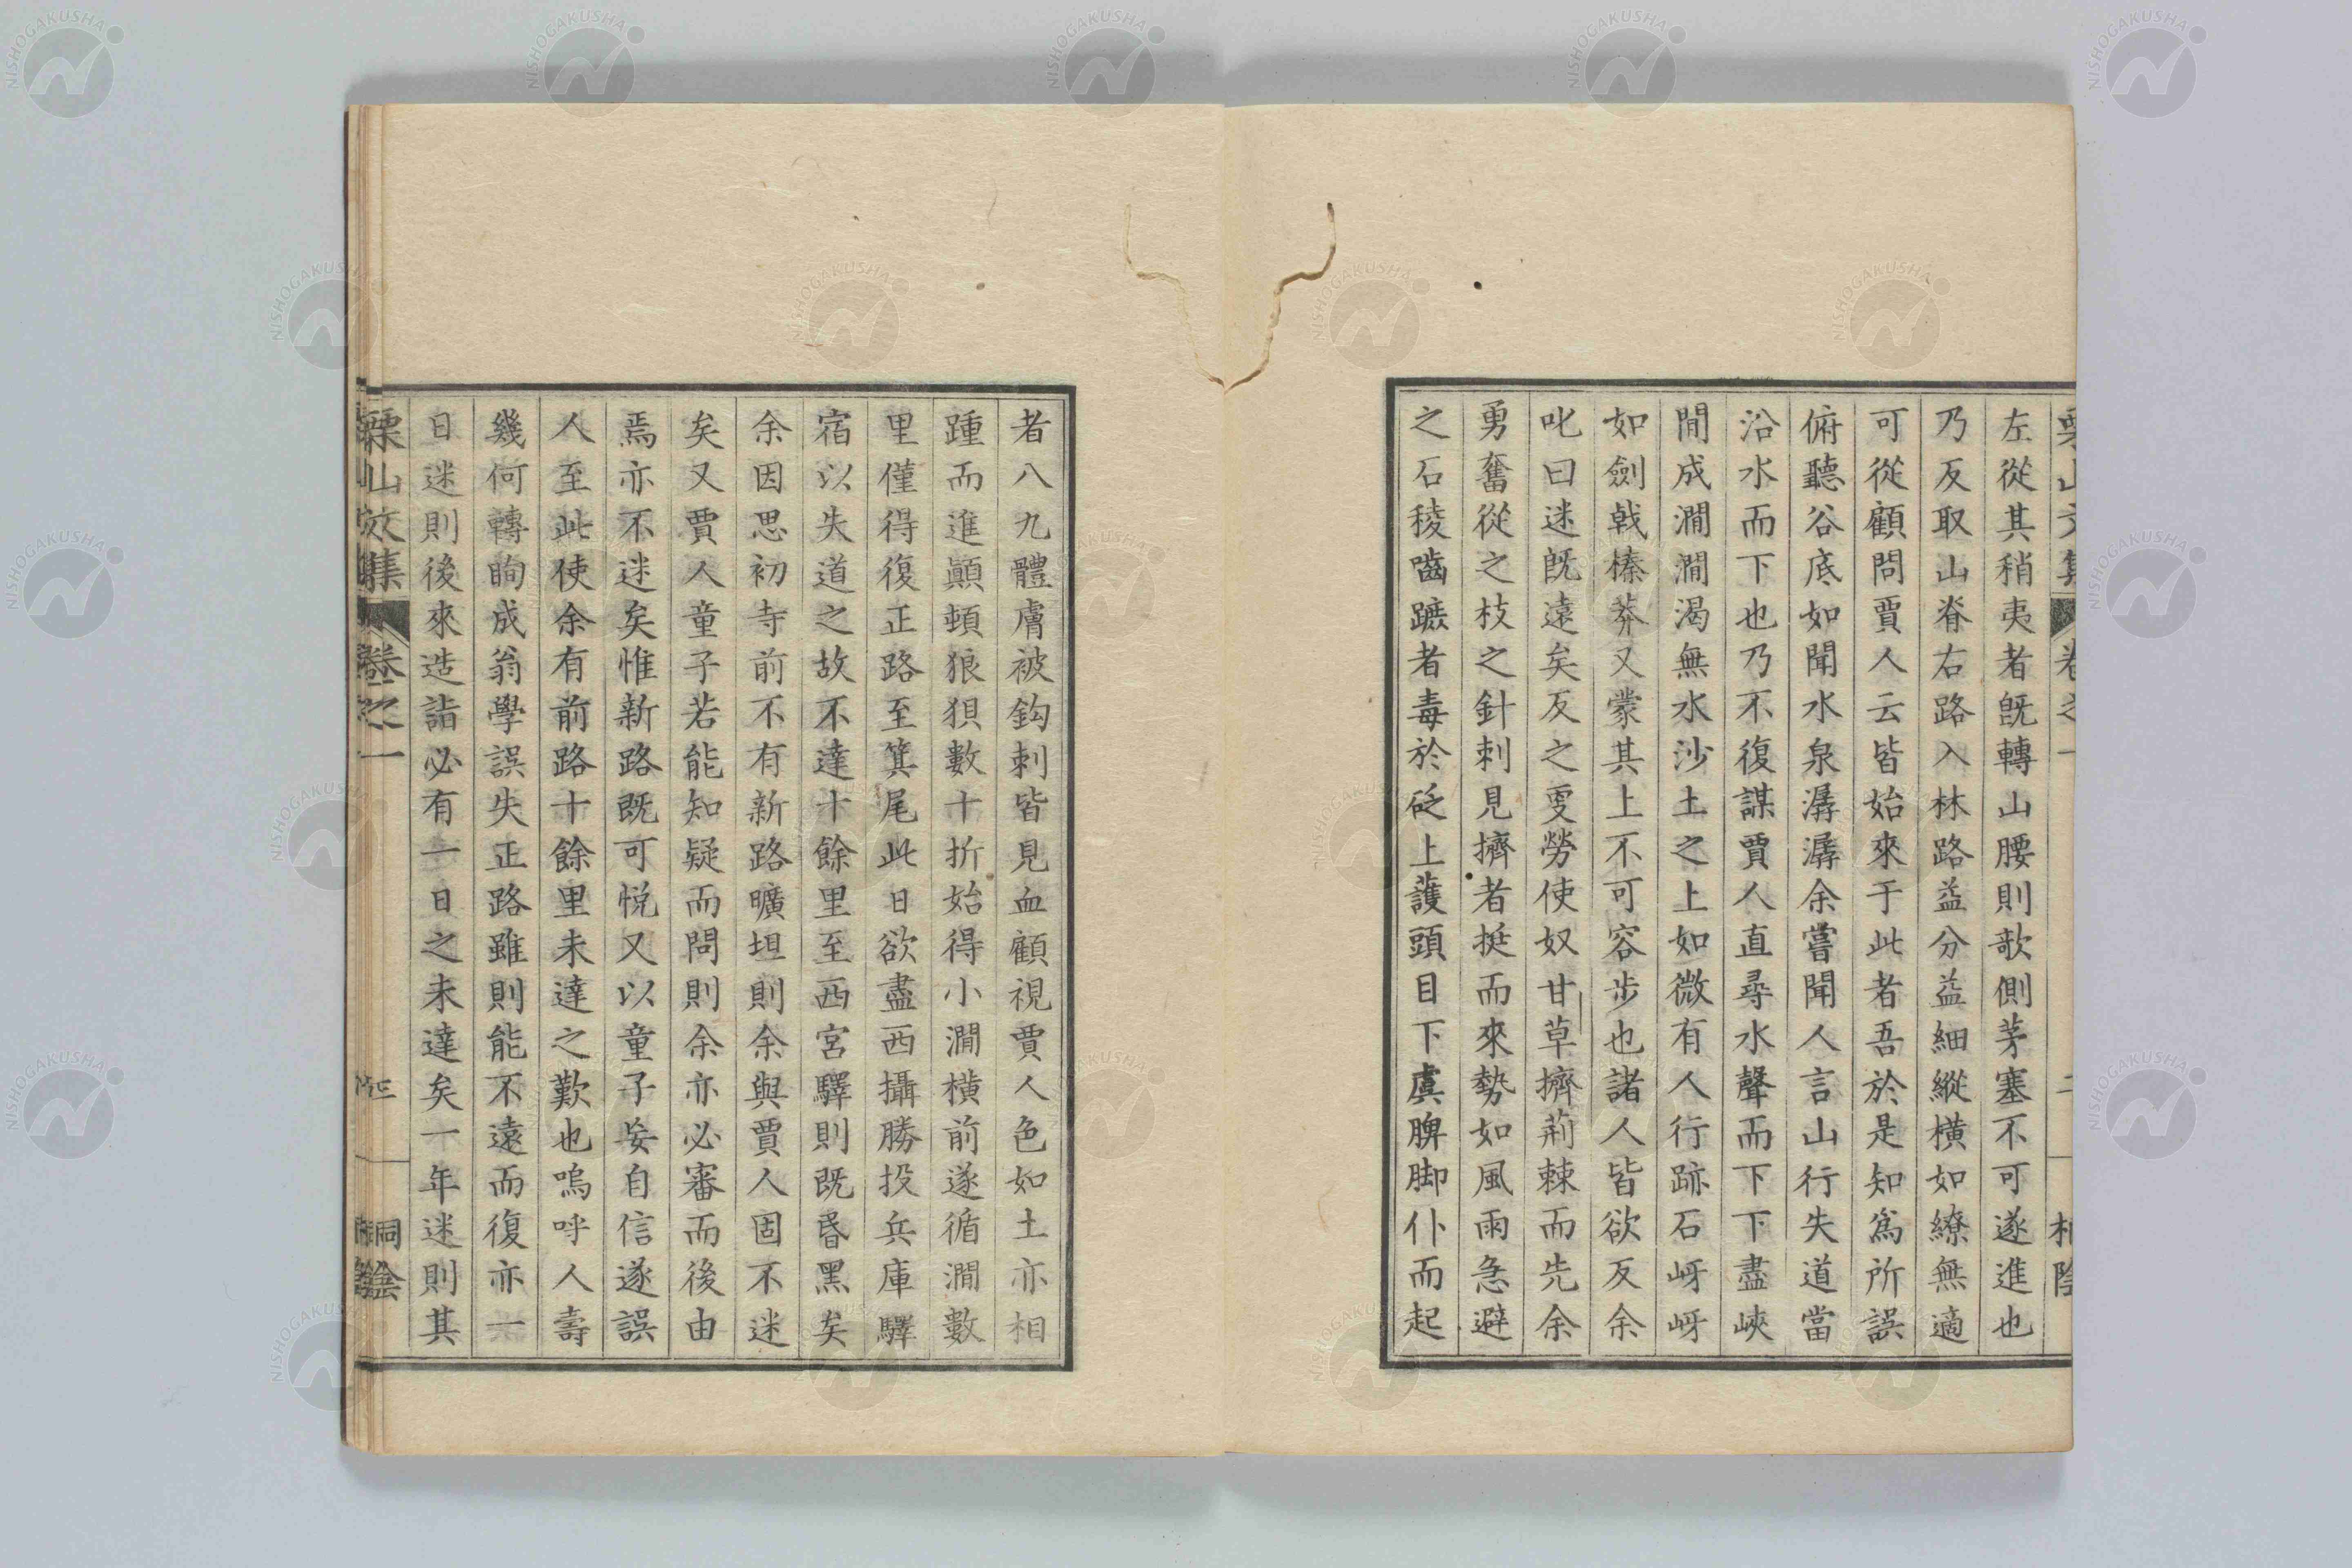 左從其稍夷者旣轉山腰則歌側茅塞不可遂進也
乃反取山脊右路入林路益分益細縱橫如繚無適
可從顧問賈人云皆始來于此者吾於是知爲所誤
俯聽谷底如聞水泉潺潺余嘗聞人言山行失道當
沿水而下也乃不復謀賈人直尋水聲而下下盡峽
間成澗澗渴無水沙土之上如微有人行跡石岈岈
如劍戟榛莽又蒙其上不可容步也諸人皆欲反余
叱曰迷旣遠矣反之更勞使奴甘草擠荊棘而先余
勇奮從之枝之針刺見擠者挺而來勢如風雨急避
之石稜嚙蹠者毒於砭上護頭目下虞脾脚仆而起
者八九體膚被鈎刺皆見血顧視賈人色如土亦相
踵而進顚頓狼狽數十折始得小澗橫前遂循澗數
里僅得復正路至箕尾此日欲盡西攝勝投兵庫驛
宿以失道之故不達十餘里至西宮驛則既昏黑矣
余因思初寺前不有新路曠坦則余與賈人固不迷
矣又賈人童子若能知疑而問則余亦必審而後由
焉亦不迷矣惟新路既可悅又以童子妄自信遂誤
人至此使余有前路十餘里未達之歎也嗚呼人壽
幾何轉眴成翁學誤失正路雖則能不遠而復亦一
日迷則後來造詣必有一日之未達矣一年迷則其
栗山文集 卷之一 三 桐陰